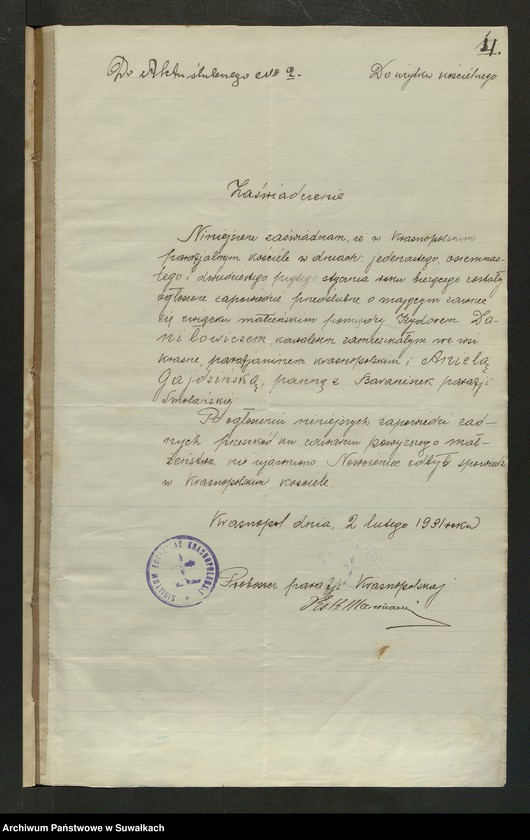 4.
Do Aktu ślubnego No 9.
Do użytku kościelnego
Zaświadczenie
Niniejszem zaświadczam, że w Krasnopolskim
parafjalnym kościele w dniach: jedenastego, osiemna-
stego i dwudziestego piątego stycznia roku bieżącego zostały
ogłoszone zapowiedzie przedślubne o mającym zawrzeć
się związku małżeńskim pomiędzy Izydorem Da-
niłowiczem, kawalerem zamieszkałym we wsi
Krasne, parafjaninem krasnopolskim i Anielą
Gajdzińską, panną z Baraninek parafji
Smolańskiej.
Po ogłoszeniu niniejszych zapowiedzi żad-
nych przeszkód ku zawarciu powyższego mał-
żeństwa nie ujawniono. Narzeczony odbył spowiedź
w Krasnopolskim kościele.
Krasnopol dnia, 2 lutego 1931 roku
SIGILLUM ECCLESIAE KRASNOPOLENSIS
Proboszcz parafji Krasnopolskiej
Ks K
Archiwum Państwowe w Suwałkach